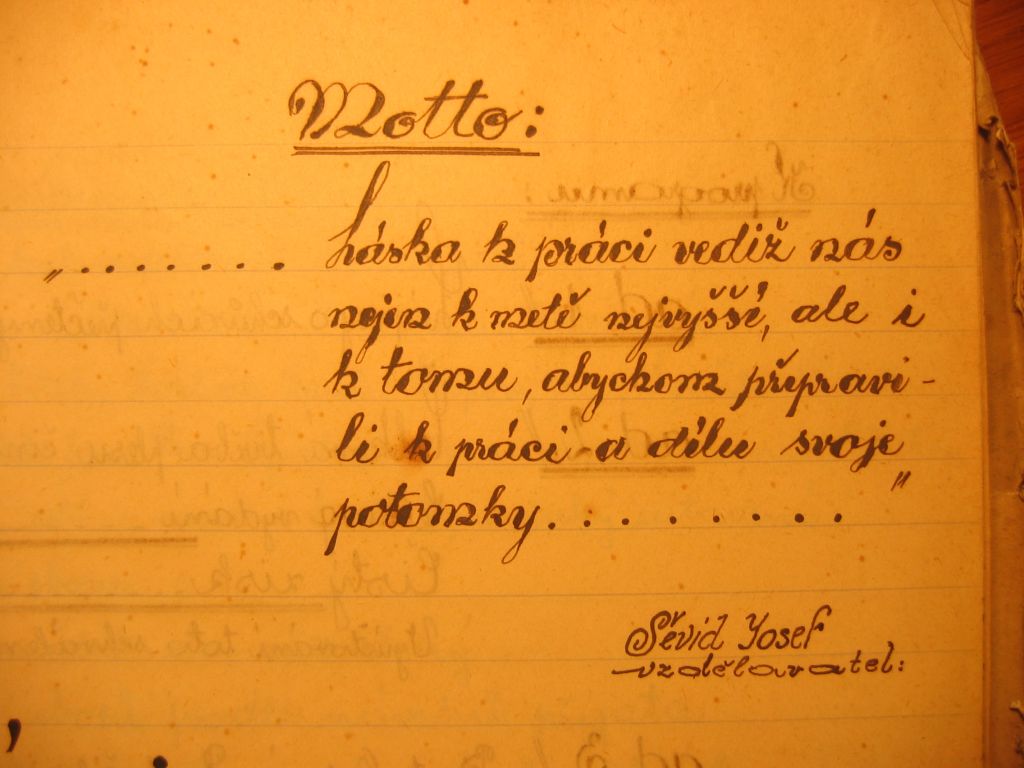 Motto:
„........ láska k práci vediž nás
nejen k metě nejvyšší, ale i
k tomu, abychom připravi-
li k práci a dílu svoje
potomky........."
Sěvid Josef
vzdělavatel: